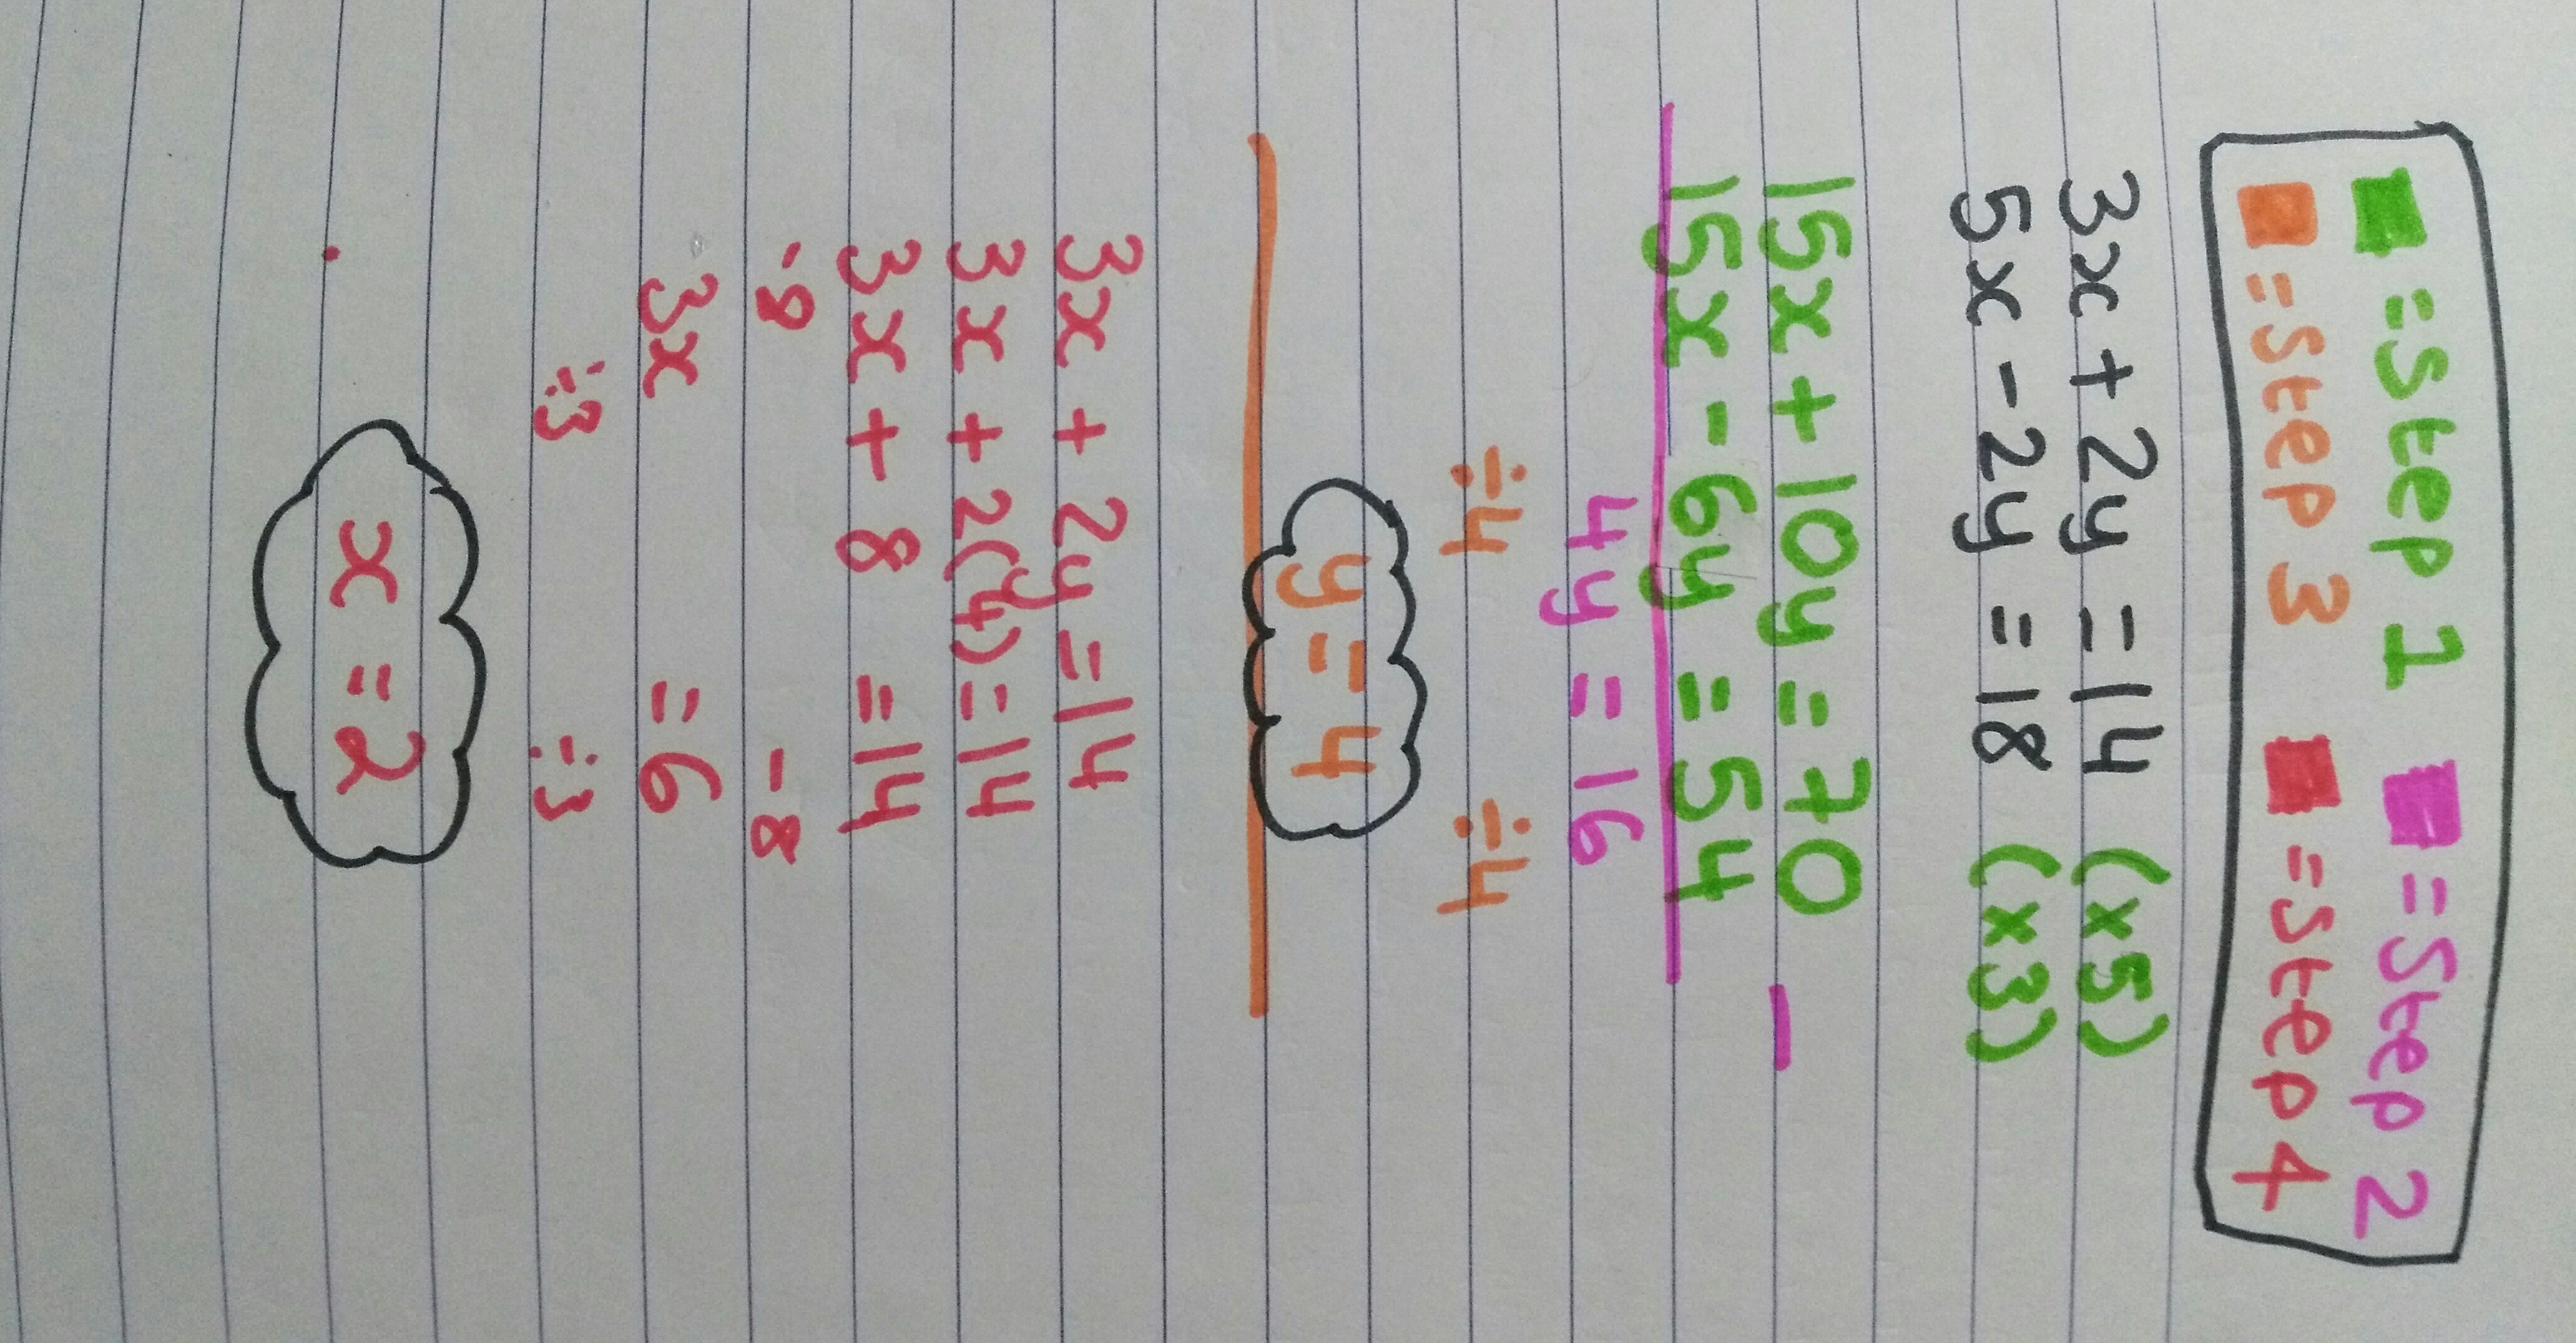 = Step 1 = Step 2
= Step 3 = Step 4
3x + 2y = 14 (x5)
5x - 2y = 18 (x3)
15x + 10y = 70 -
15x - 6y = 54
4y = 16
÷4 ÷4
y = 4
3x + 2y = 14
3x + 2(4) = 14
3x + 8 = 14
-8 -8
3x = 6
÷3 ÷3
x = 2